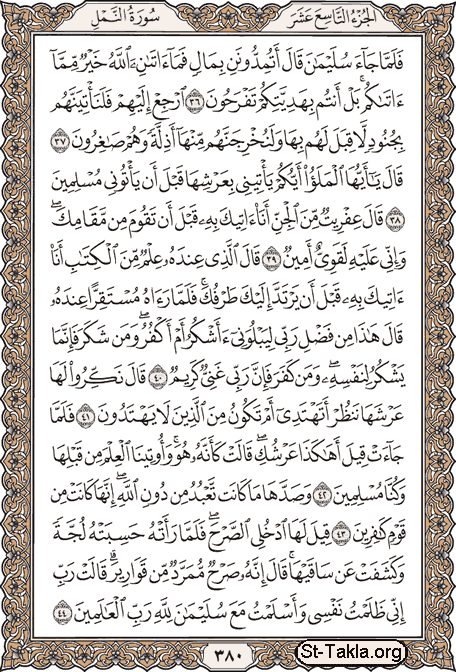 الجزء التاسع عشر
سورة النمل
فَلَمَّا جَآءَ سُلَيْمَٰنَ قَالَ أَتُمِدُّونَنِ بِمَالٍ فَمَآ ءَاتَىٰنِۦَ ٱللَّهُ خَيْرٌ مِّمَّآ
ءَاتَىٰكُم بَلْ أَنتُم بِهَدِيَّتِكُمْ تَفْرَحُونَ ٣٦ ٱرْجِعْ إِلَيْهِمْ فَلَنَأْتِيَنَّهُم
بِجُنُودٍ لَّا قِبَلَ لَهُم بِهَا وَلَنُخْرِجَنَّهُم مِّنْهَآ أَذِلَّةً وَهُمْ صَٰغِرُونَ ٣٧
قَالَ يَٰٓأَيُّهَا ٱلْمَلَؤُا۟ أَيُّكُمْ يَأْتِينِى بِعَرْشِهَا قَبْلَ أَن يَأْتُونِى مُسْلِمِينَ
٣٨ قَالَ عِفْرِيتٌ مِّنَ ٱلْجِنِّ أَنَا۠ ءَاتِيكَ بِهِۦ قَبْلَ أَن تَقُومَ مِن مَّقَامِكَ ۖ
وَإِنِّى عَلَيْهِ لَقَوِىٌّ أَمِينٌ ٣٩ قَالَ ٱلَّذِى عِندَهُۥ عِلْمٌ مِّنَ ٱلْكِتَٰبِ أَنَا۠
ءَاتِيكَ بِهِۦ قَبْلَ أَن يَرْتَدَّ إِلَيْكَ طَرْفُكَ ۚ فَلَمَّا رَءَاهُ مُسْتَقِرًّا عِندَهُۥ
قَالَ هَٰذَا مِن فَضْلِ رَبِّى لِيَبْلُوَنِىٓ ءَأَشْكُرُ أَمْ أَكْفُرُ ۖ وَمَن شَكَرَ فَإِنَّمَا
يَشْكُرُ لِنَفْسِهِۦ ۖ وَمَن كَفَرَ فَإِنَّ رَبِّى غَنِىٌّ كَرِيمٌ ٤٠ قَالَ نَكِّرُوا۟ لَهَا
عَرْشَهَا نَنظُرْ أَتَهْتَدِىٓ أَمْ تَكُونُ مِنَ ٱلَّذِينَ لَا يَهْتَدُونَ ٤١ فَلَمَّا
جَآءَتْ قِيلَ أَهَٰكَذَا عَرْشُكِ ۖ قَالَتْ كَأَنَّهُۥ هُوَ ۚ وَأُوتِينَا ٱلْعِلْمَ مِن قَبْلِهَا
وَكُنَّا مُسْلِمِينَ ٤٢ وَصَدَّهَا مَا كَانَت تَّعْبُدُ مِن دُونِ ٱللَّهِ ۖ إِنَّهَا كَانَتْ مِن
قَوْمٍ كَٰفِرِينَ ٤٣ قِيلَ لَهَا ٱدْخُلِى ٱلصَّرْحَ ۖ فَلَمَّا رَأَتْهُ حَسِبَتْهُ لُجَّةً
وَكَشَفَتْ عَن سَاقَيْهَا ۚ قَالَ إِنَّهُۥ صَرْحٌ مُّمَرَّدٌ مِّن قَوَارِيرَ ۗ قَالَتْ رَبِّ
إِنِّى ظَلَمْتُ نَفْسِى وَأَسْلَمْتُ مَعَ سُلَيْمَٰنَ لِلَّهِ رَبِّ ٱلْعَٰلَمِينَ ٤٤
٣٨٠
St-Takla.org